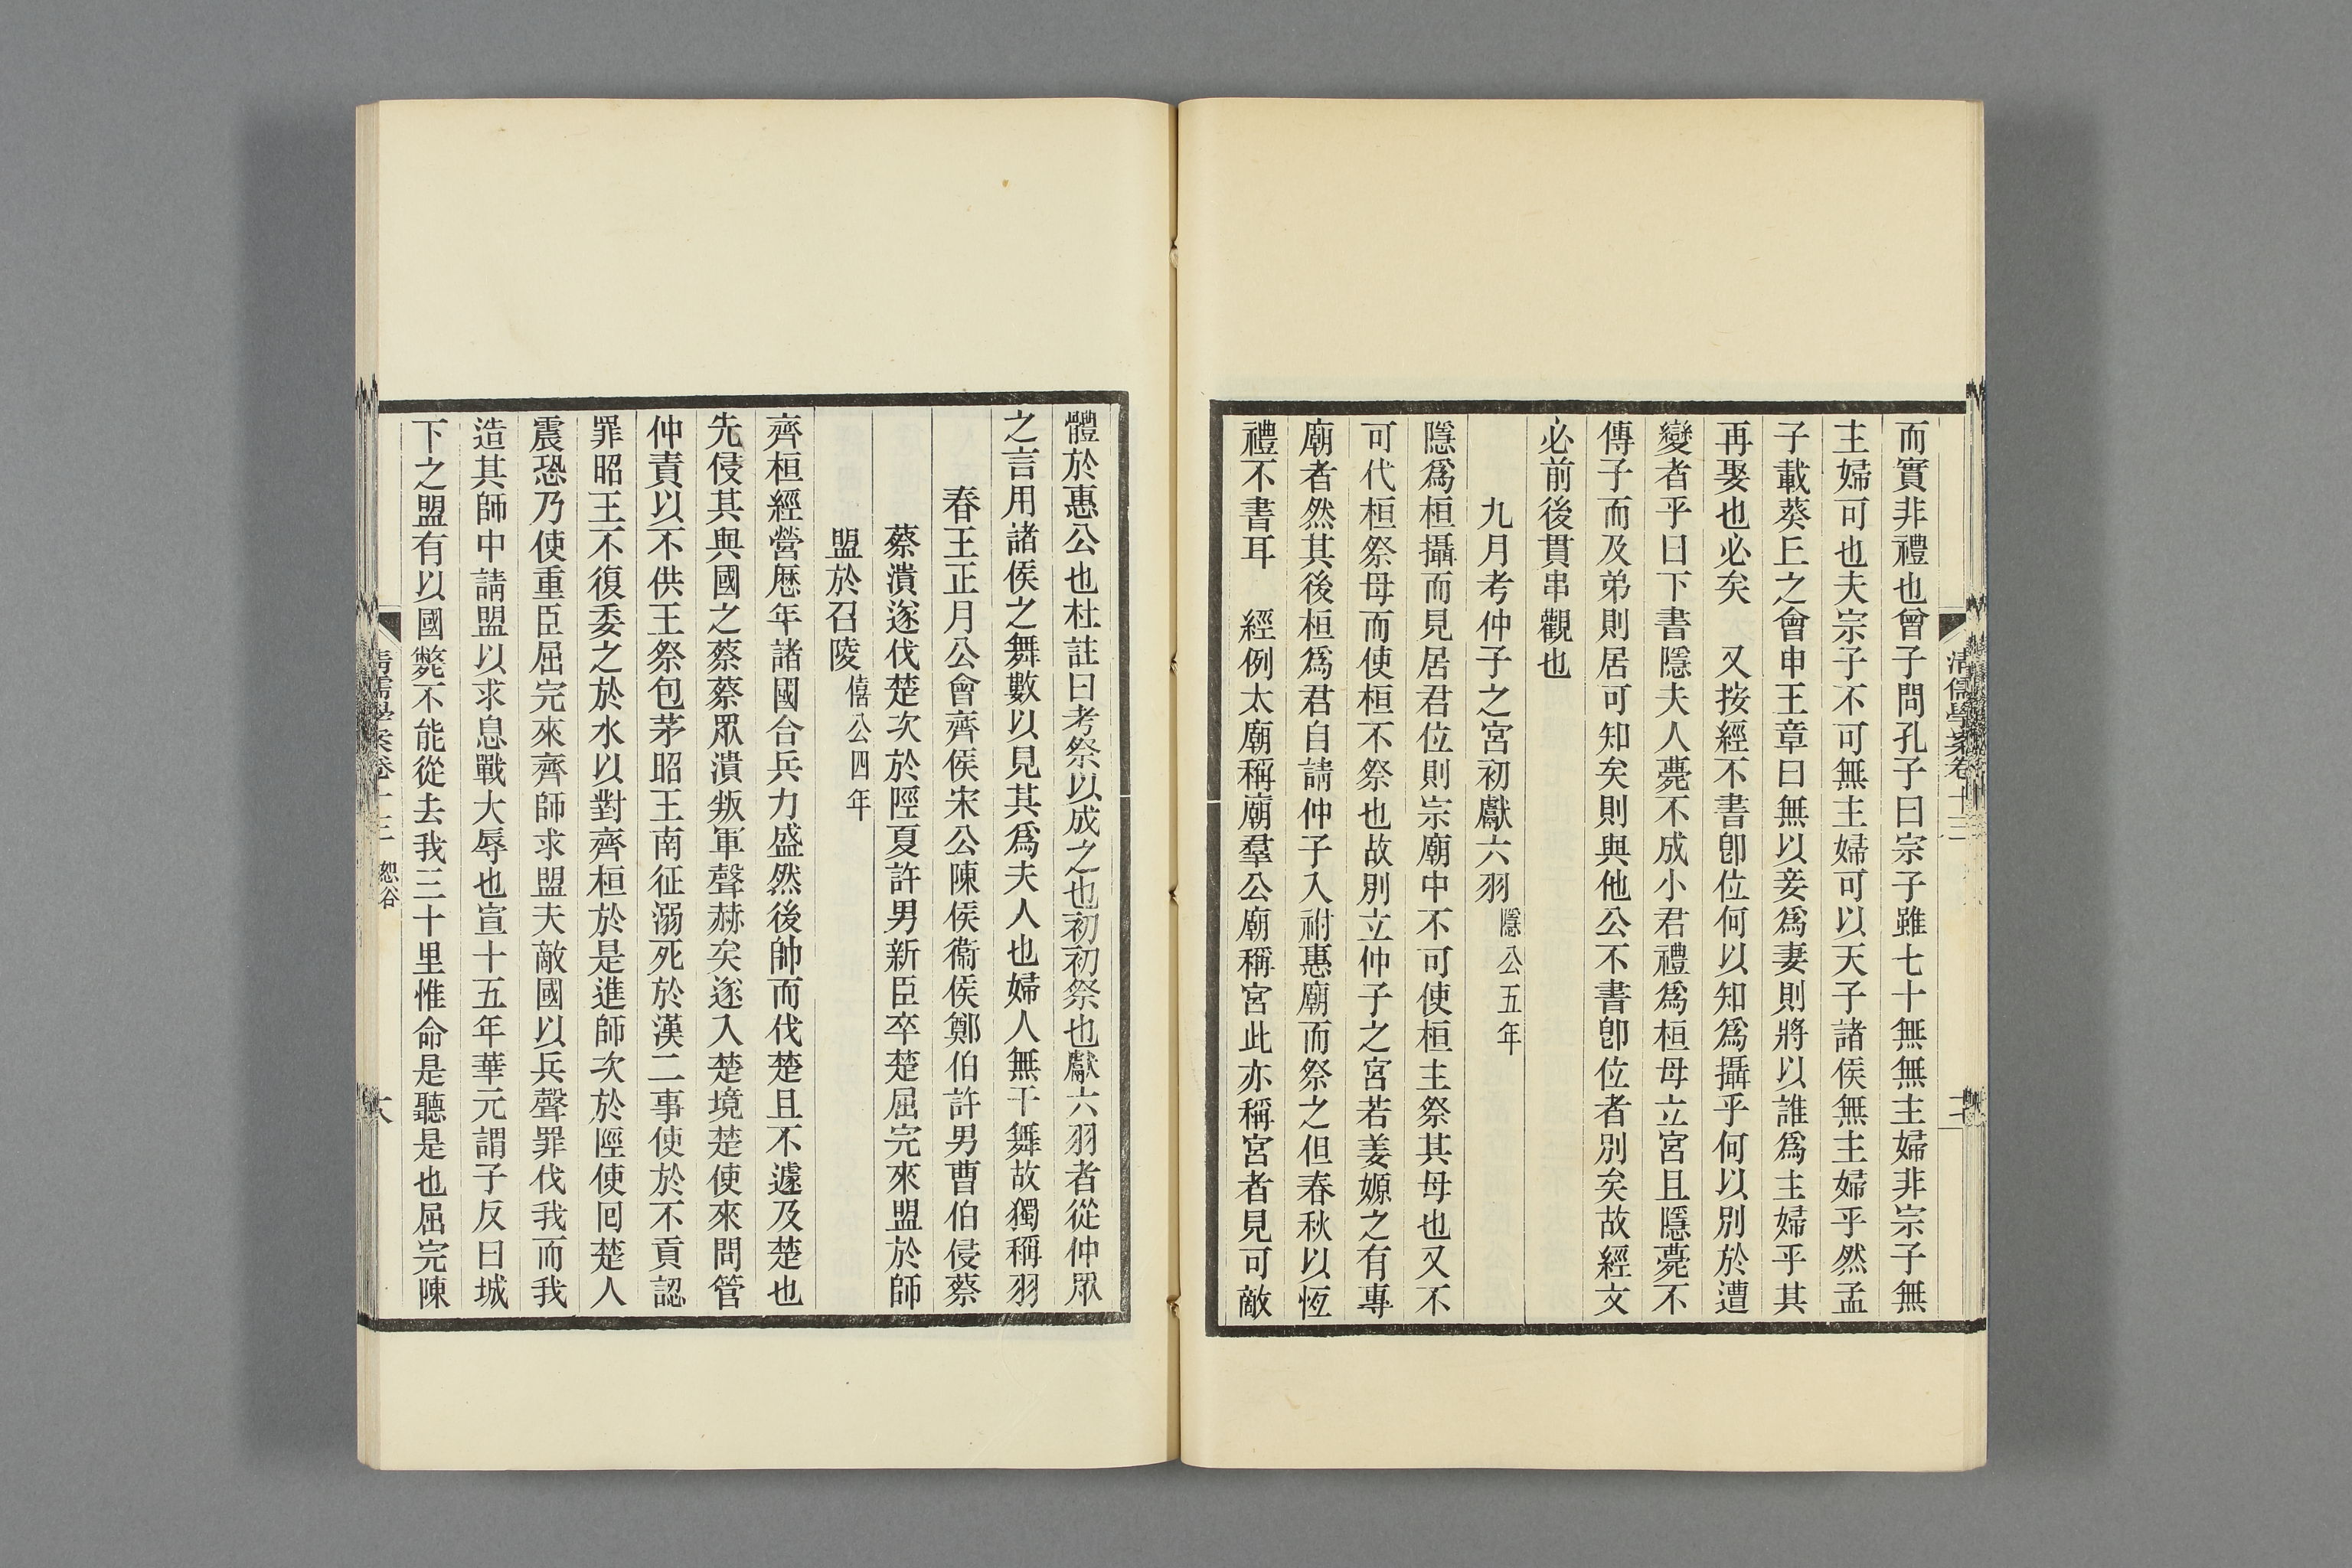 清儒學案卷十三
而實非禮也曾子問孔子曰宗子雖七十無無主婦非宗子無
主婦可也夫宗子不可無主婦可以天子諸侯無主婦乎然孟
子載葵丘之會申王章曰無以妾爲妻則將以誰爲主婦乎其
再娶也必矣　又按經不書卽位何以知爲攝乎何以別於遭
變者乎曰下書隱夫人薨不成小君禮爲桓母立宮且隱薨不
傳子而及弟則居可知矣則與他公不書卽位者別矣故經文
必前後貫串觀也
九月考仲子之宮初獻六羽隱公五年
隱爲桓攝而見居君位則宗廟中不可使桓主祭其母也又不
可代桓祭母而使桓不祭也故別立仲子之宮若姜嫄之有專
廟者然其後桓爲君自請仲子入祔惠廟而祭之但春秋以恆
禮不書耳　經例太廟稱廟羣公廟稱宮此亦稱宮者見可敵
體於惠公也杜註曰考祭以成之也初初祭也獻六羽者從仲眾
之言用諸侯之舞數以見其爲夫人也婦人無干舞故獨稱羽
春王正月公會齊侯宋公陳侯衞侯鄭伯許男曹伯侵蔡
蔡潰遂伐楚次於陘夏許男新臣卒楚屈完來盟於師
盟於召陵僖公四年
齊桓經營歷年諸國合兵力盛然後帥而伐楚且不遽及楚也
先侵其與國之蔡蔡眾潰叛軍聲赫矣遂入楚境楚使來問管
仲責以不供王祭包茅昭王南征溺死於漢二事使於不貢認
罪昭王不復委之於水以對齊桓於是進師次於陘使回楚人
震恐乃使重臣屈完來齊師求盟夫敵國以兵聲罪伐我而我
造其師中請盟以求息戰大辱也宣十五年華元謂子反曰城
下之盟有以國斃不能從去我三十里惟命是聽是也屈完陳
清儒學案卷十三　恕谷